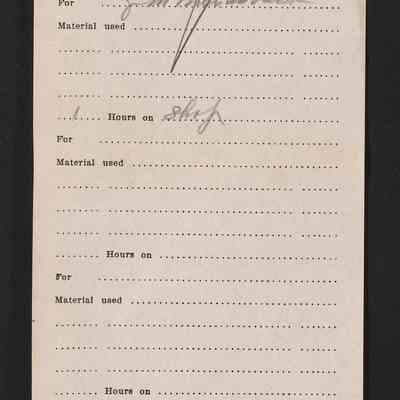 For J. M.
Material used
1 Hours on shop
For
Material used
Hours on
For
Material used
Hours on